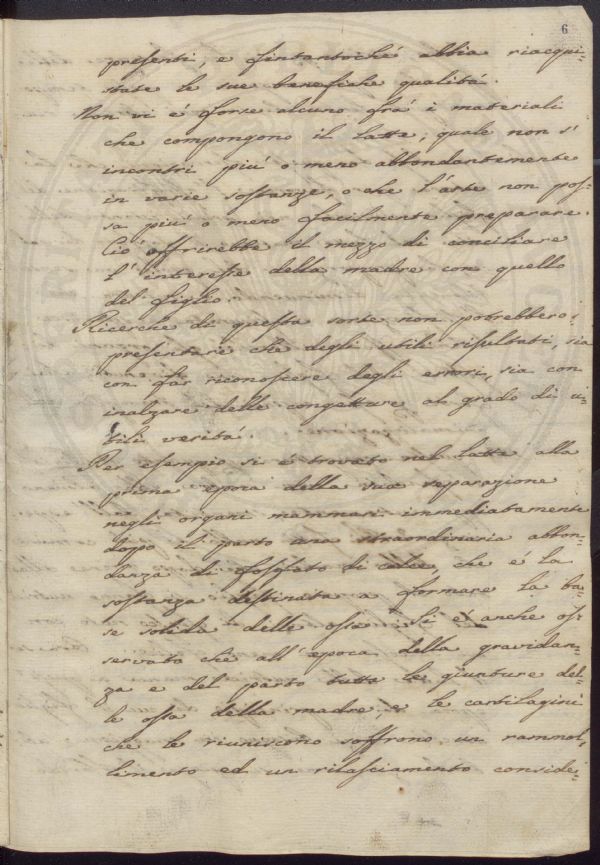 6
presenti, e fintantoché abbia riacqui-
state le sue benefiche qualitá.
Non vi é forse alcuno frá i materiali
che compongono il latte, quale non s'
incontri piú o meno abbondantemente
in varie sostanze, o che l'arte non pos-
sa piú o meno facilmente preparare.
Ció offrirebbe il mezzo di conciliare
l'interesse della madre con quello
del figlio.
Ricerche di questa sorte non potrebbero
presentare che degli utili risultati, sia
con far riconoscere degli errori, sia con
inalzare delle congetture al grado di u-
tili veritá.
Per esempio si é trovato nel latte alla
prima epoca della sua separazione
negli organi mammari immediatamente
dopo il parto una straordinaria abbon-
danza di fosfato di calce, che é la
sostanza destinata a formare la ba-
se solida delle ossa. Si é anche os-
servato che all'epoca della gravidan-
za e del parto tutte le giunture del-
le ossa della madre, e le cartilagini
che le riuniscono soffrono un rammol-
limento ed un rilasciamento conside-